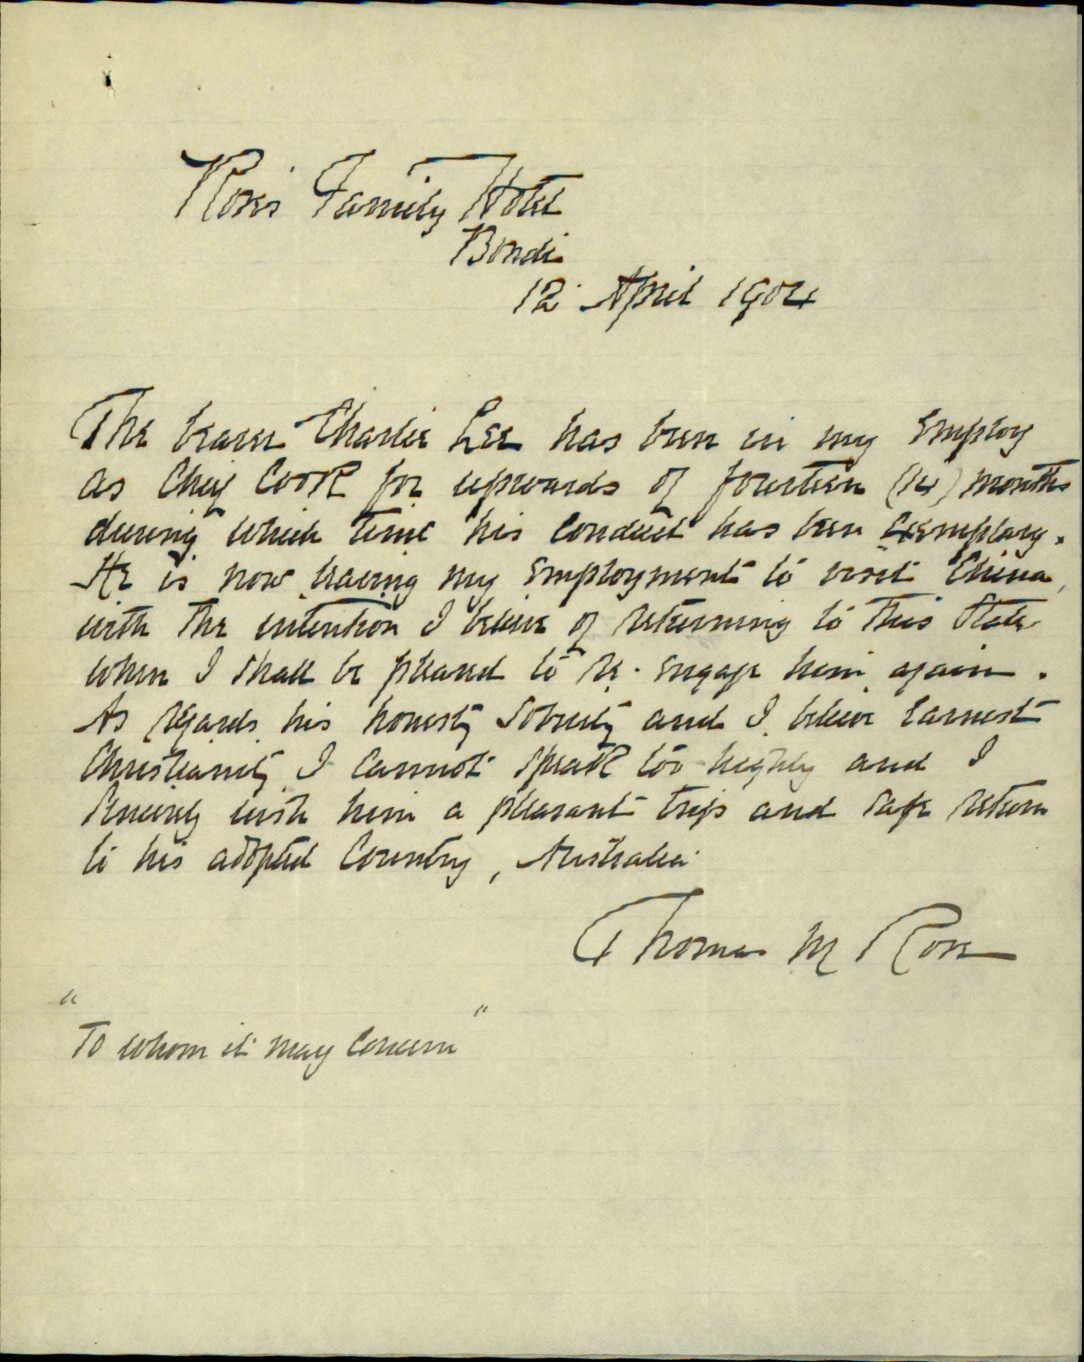 Ross's Family Hotel
Bondi
12 April 1904
The bearer Charlie Lee has been in my employ
as Chief Cook for upwards of fourteen (14) months
during which time his conduct has been exemplary.
He is now leaving my employment to visit China,
with the intention I believe of returning to this State
when I shall be pleased to re-engage him again.
As regards his honesty sobriety and I believe earnest
Christianity I cannot speak too highly and I
sincerely wish him a pleasant trip and safe return
to his adopted Country, Australia
Thomas M Ross
"To whom it may concern"